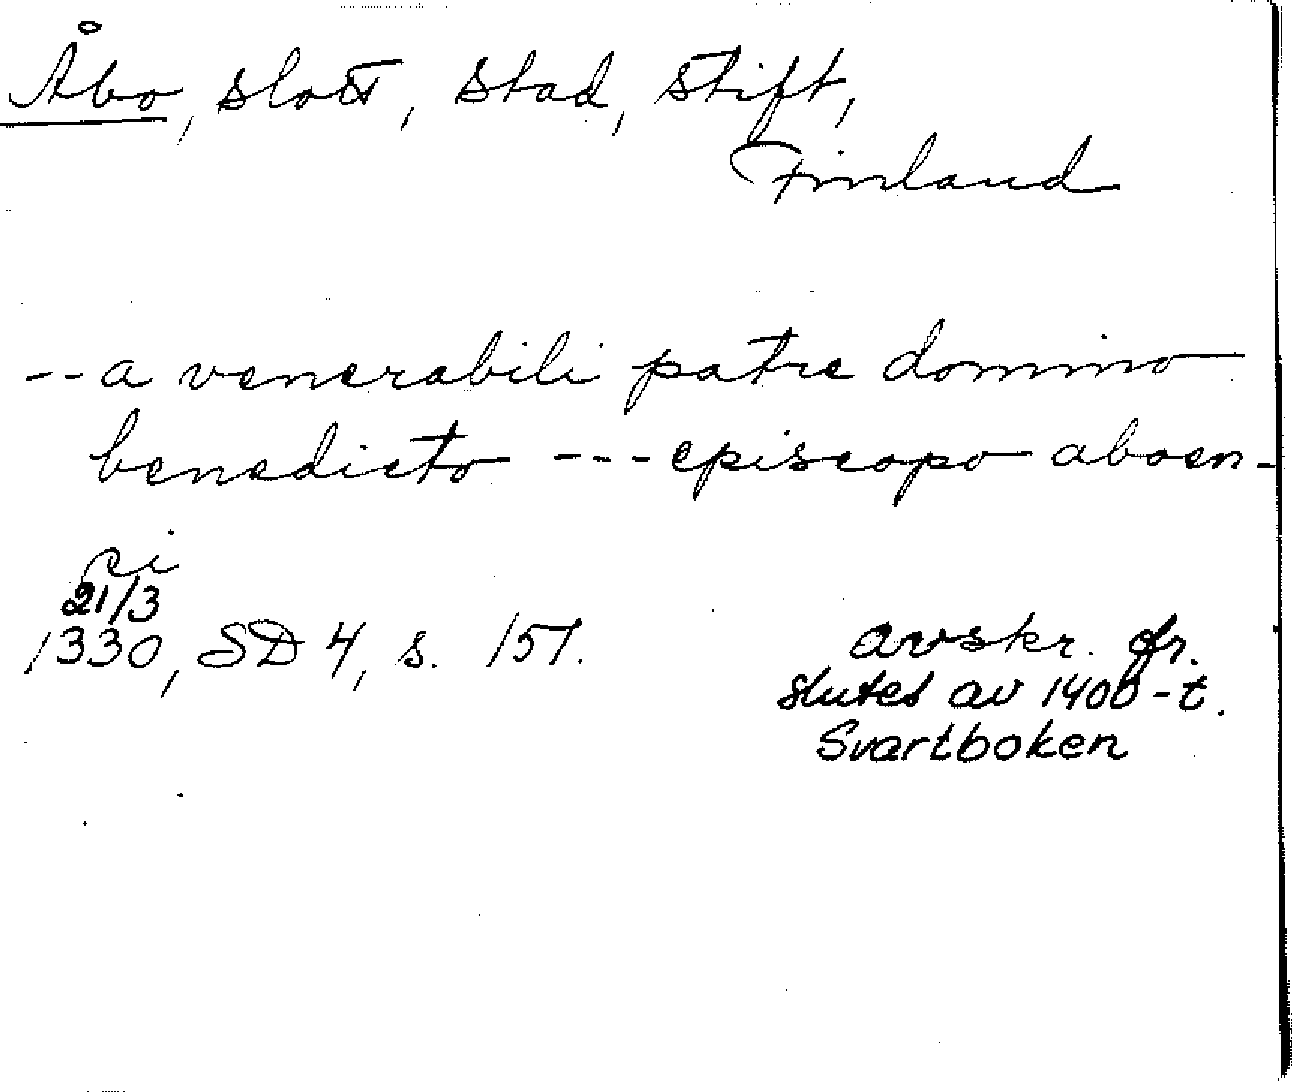 Åbo, slott, stad, stift,
Finland
-- a venerabili patre domino
benedicto --- episcopo aboen-
si
21/3
1330, SD 4, s. 157.
avskr. fr.
slutet av 1400-t.
Svartboken